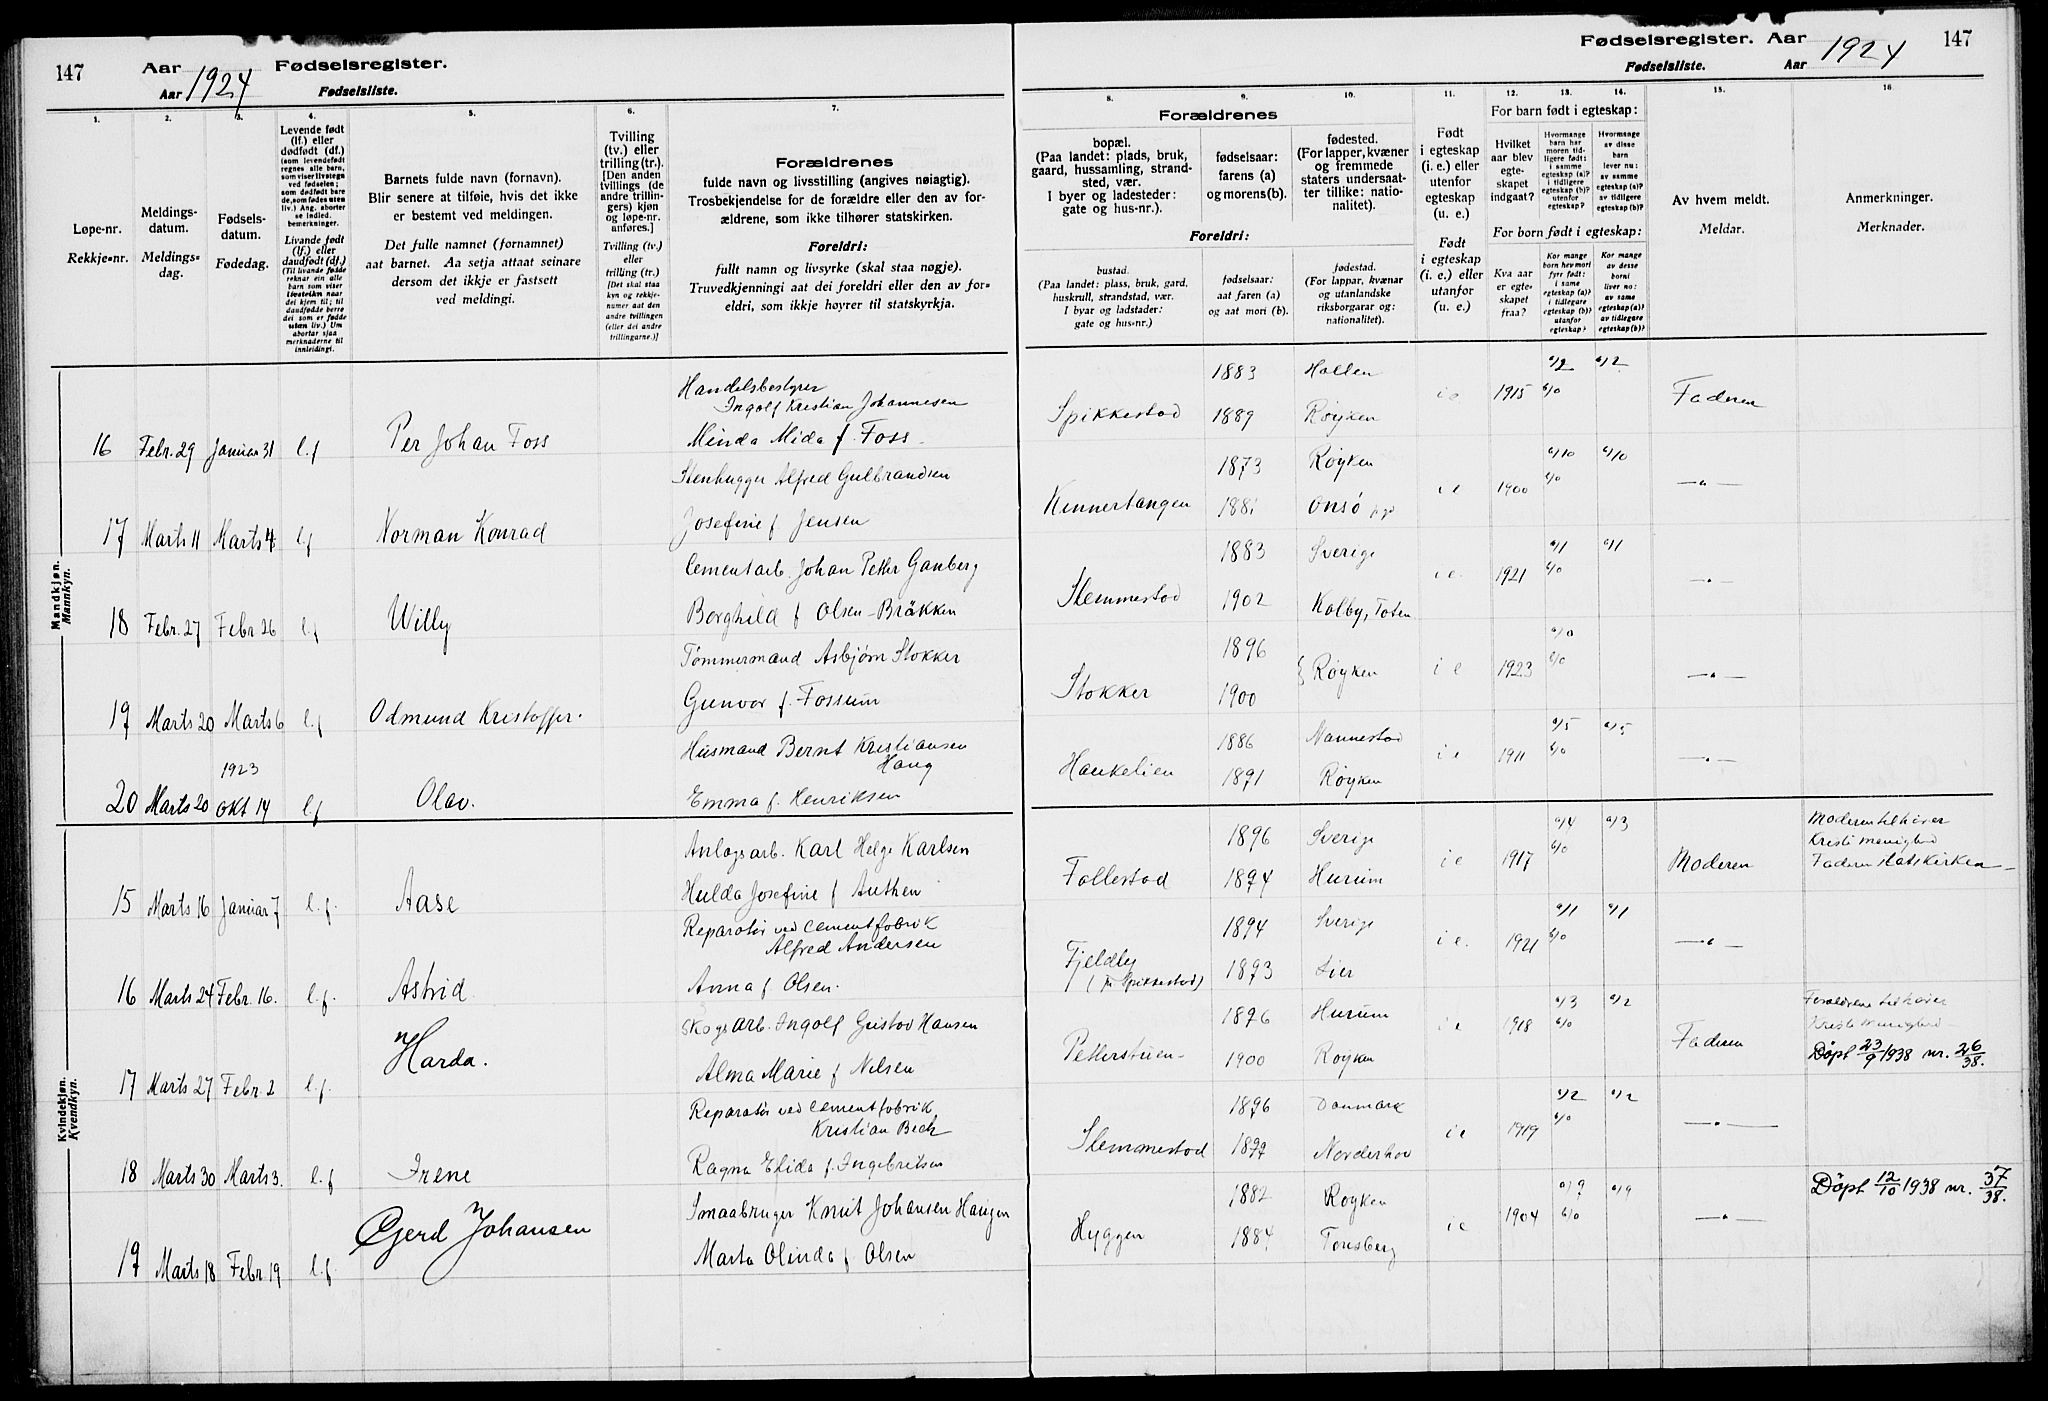 147
Aar 1924 Fødselsregister.
Aar Fødselsliste.
Fødselsregister. Aar 1924
Fødselsliste. Aar
147
1.
Løpe-nr.
Rekkje=nr.
2.
Meldings-
datum.
Meldings=
dag.
3.
Fødsels-
datum.
Fødedag.
4.
Levende født
(lf.) eller
dødfødt (df.)
(som levendefødt
regnes alle barn,
som viser livstegn
ved fødselen;
som dødfødt bare
de, som fødes uten
liv.) Ang. aborter
se indled.
bemerkninger.
Livande født
(lf.) eller
daudfødt (df.)
(Til livande fødde
reknar ein alle
barn som viser
livsteikn naar
dei kjem til; til
daudfødde berre
dei som er fødde
utan liv.) Um
abortar sjaa
merknaderne til
innleidingi.
5.
Barnets fulde navn (fornavn).
Blir senere at tilføie, hvis det ikke
er bestemt ved meldingen.
Det fulle namnet (fornamnet)
aat barnet. Aa setja attaat seinare
dersom det ikkje er fastsett
ved meldingi.
6.
Tvilling
(tv.) eller
trilling (tr.).
[Den anden
tvillings (de
andre trillin-
gers) kjøn
og løpe-nr.
anføres.]
Tvilling (tv.)
eller
trilling (tr.)
[Det skal staa
kyn og rekkje-
numer aat den
andre tvillingen
(eller dei andre
trillingarne.)]
7.
Forældrenes
fulde navn og livsstilling (angives nøiagtig).
Trosbekjendelse for de forældre eller den av for-
ældrene, som ikke tilhører statskirken.
Foreldri:
fullt namn og livsyrke (skal staa nøgje).
Truvedkjenningi aat dei foreldri eller den av for=
eldri, som ikkje høyrer til statskyrkja.
8.
9.
10.
Forældrenes
bopæl.
(Paa landet: plads, bruk,
gaard, hussamling, strand-
sted, vær.
I byer og ladesteder:
gate og hus-nr.).
fødselsaar:
farens (a)
og morens (b).
fødested.
(For lapper, kvæner
og fremmede
staters undersaat-
ter tillike: natio-
nalitet).
Foreldri:
bustad.
(Paa landet: plass, bruk, gard,
huskrull, strandstad, vær.
I byar og ladstader:
gate og hus=nr.)
fødselsaar:
aat faren (a)
og aat mori (b).
fødestad.
(For lappar, kvænar
og utanlandske
riksborgarar og:
nationalitet).
11.
Født
i egteskap
(i. e.) eller
utenfor
egteskap
(u. e.)
Født
i egteskap
(i. e.) eller
utanfor
(u. e.)
12.
13.
14.
For barn født i egteskap:
Hvilket
aar blev
egte-
skapet
indgaat?
Hvormange
barn har
moren tid-
ligere født:
i samme
egteskap (a)?
i tidligere
egteskap (b)?
utenfor
egteskap?
Hvormange
av disse
barn
lever nu:
av samme
egteskap (a)?
av tidligere
egteskap (b)?
For born født i egteskap:
Kva aar
er egte-
skapet
fraa?
Kor mange
born hev mori
fyrr født:
i same
egteskap (a)?
i tidlegare
egteskap (b)?
utanfor
egteskap?
Kor mange
av desse
borni
liver no:
av same
egteskap (a)?
av tidlegare
egteskap (b)?
15.
Av hvem meldt.
Meldar.
16
Anmerkninger.
Merknader.
Mandkjøn.
Mannkyn.
16 Febr. 29 Januar 31 l.f Per Johan Foss
Handelsbestyrer
Ingolf Kristian Johannesen
Minda Mida f. Foss
Spikkestad 1883 1889 Hallen Røyken i e 1915 a/2 b/0 a/2 Faderen
17 Marts 11 Marts 4 l.f Norman Konrad
Stenhugger Alfred Gulbrandsen
Josefine f Jensen
Kinnertangen 1873 Røyken Onsø i e 1900 a/10 b/0 a/10 —"—
18 Febr. 27 Febr 26 l.f Willy
Cementarb. Johan Petter Ganberg
Borghild f Olsen-Bråkken
Slemmestad 1883 1902 Sverige Kolby, Toten i e. 1921 a/1 b/0 a/1 —"—
19 Marts 20 Marts 6 l.f Odmund Kristoffer.
Tømmermand Asbjørn Stokker
Gunvor f. Fossum
Stokker 1896 1900 Røyken i e 1923 a/0 b/0 —"—
20 Marts 20 1923 Okt 14 l.f Olav.
Husmand Bernt Kristiansen
Haug
Emma f. Henriksen
Haukelien 1886 1891 Nannestad Røyken i e 1911 a/5 b/0 a/5 —"—
Kvindekjøn.
Kvendkyn.
15 Marts 16 Januar 7 l.f. Aase
Anlegsarb. Karl Helge Karlsen
Hulda Josefine f Authen
Follestad 1896 1894 Sverige Hurum i e 1917 a/4 b/0 a/3 Moderen
Moderen tilhører
Kristi menighed
Faderen statskirken
16 Marts 24 Febr. 16. l.f. Astrid
Reparatør ved Cementfabrik
Alfred Andersen
Anna f. Olsen.
Fjeldby
(pr Spikkestad) 1894 1893 Sverige Lier i e. 1921 a/1 b/0 a/1 —"—
17 Marts 27 Febr. 2 l.f. Harda.
Skogsarb. Ingolf Gustav Hansen
Alma Marie f Nilsen
Petterstuen 1896 1900 Hurum Røyken i e 1918 a/3 b/0 a/2 Faderen
Forældrene tilhører
Kristi menighed
Døpt 23/9 1938 nr. 26/38.
18 Marts 30 Marts 3. l.f Irene
Reparatør ved Cementfabrik,
Kristian Bech
Ragna Elida f. Ingebritsen
Slemmestad 1896 1897 Danmark Norderhov i e 1919 a/2 b/0 a/2 —"—
19 Marts 18 Febr 19 l.f. Gjerd Johansen
Smaabruger Knut Johansen Haugen
Marta Olinda f Olsen
Hyggen 1882 1884 Røyken Tønsberg i e 1904 a/9 b/0 a/9 —"—
Døpt 12/10 1938 nr. 37/38.